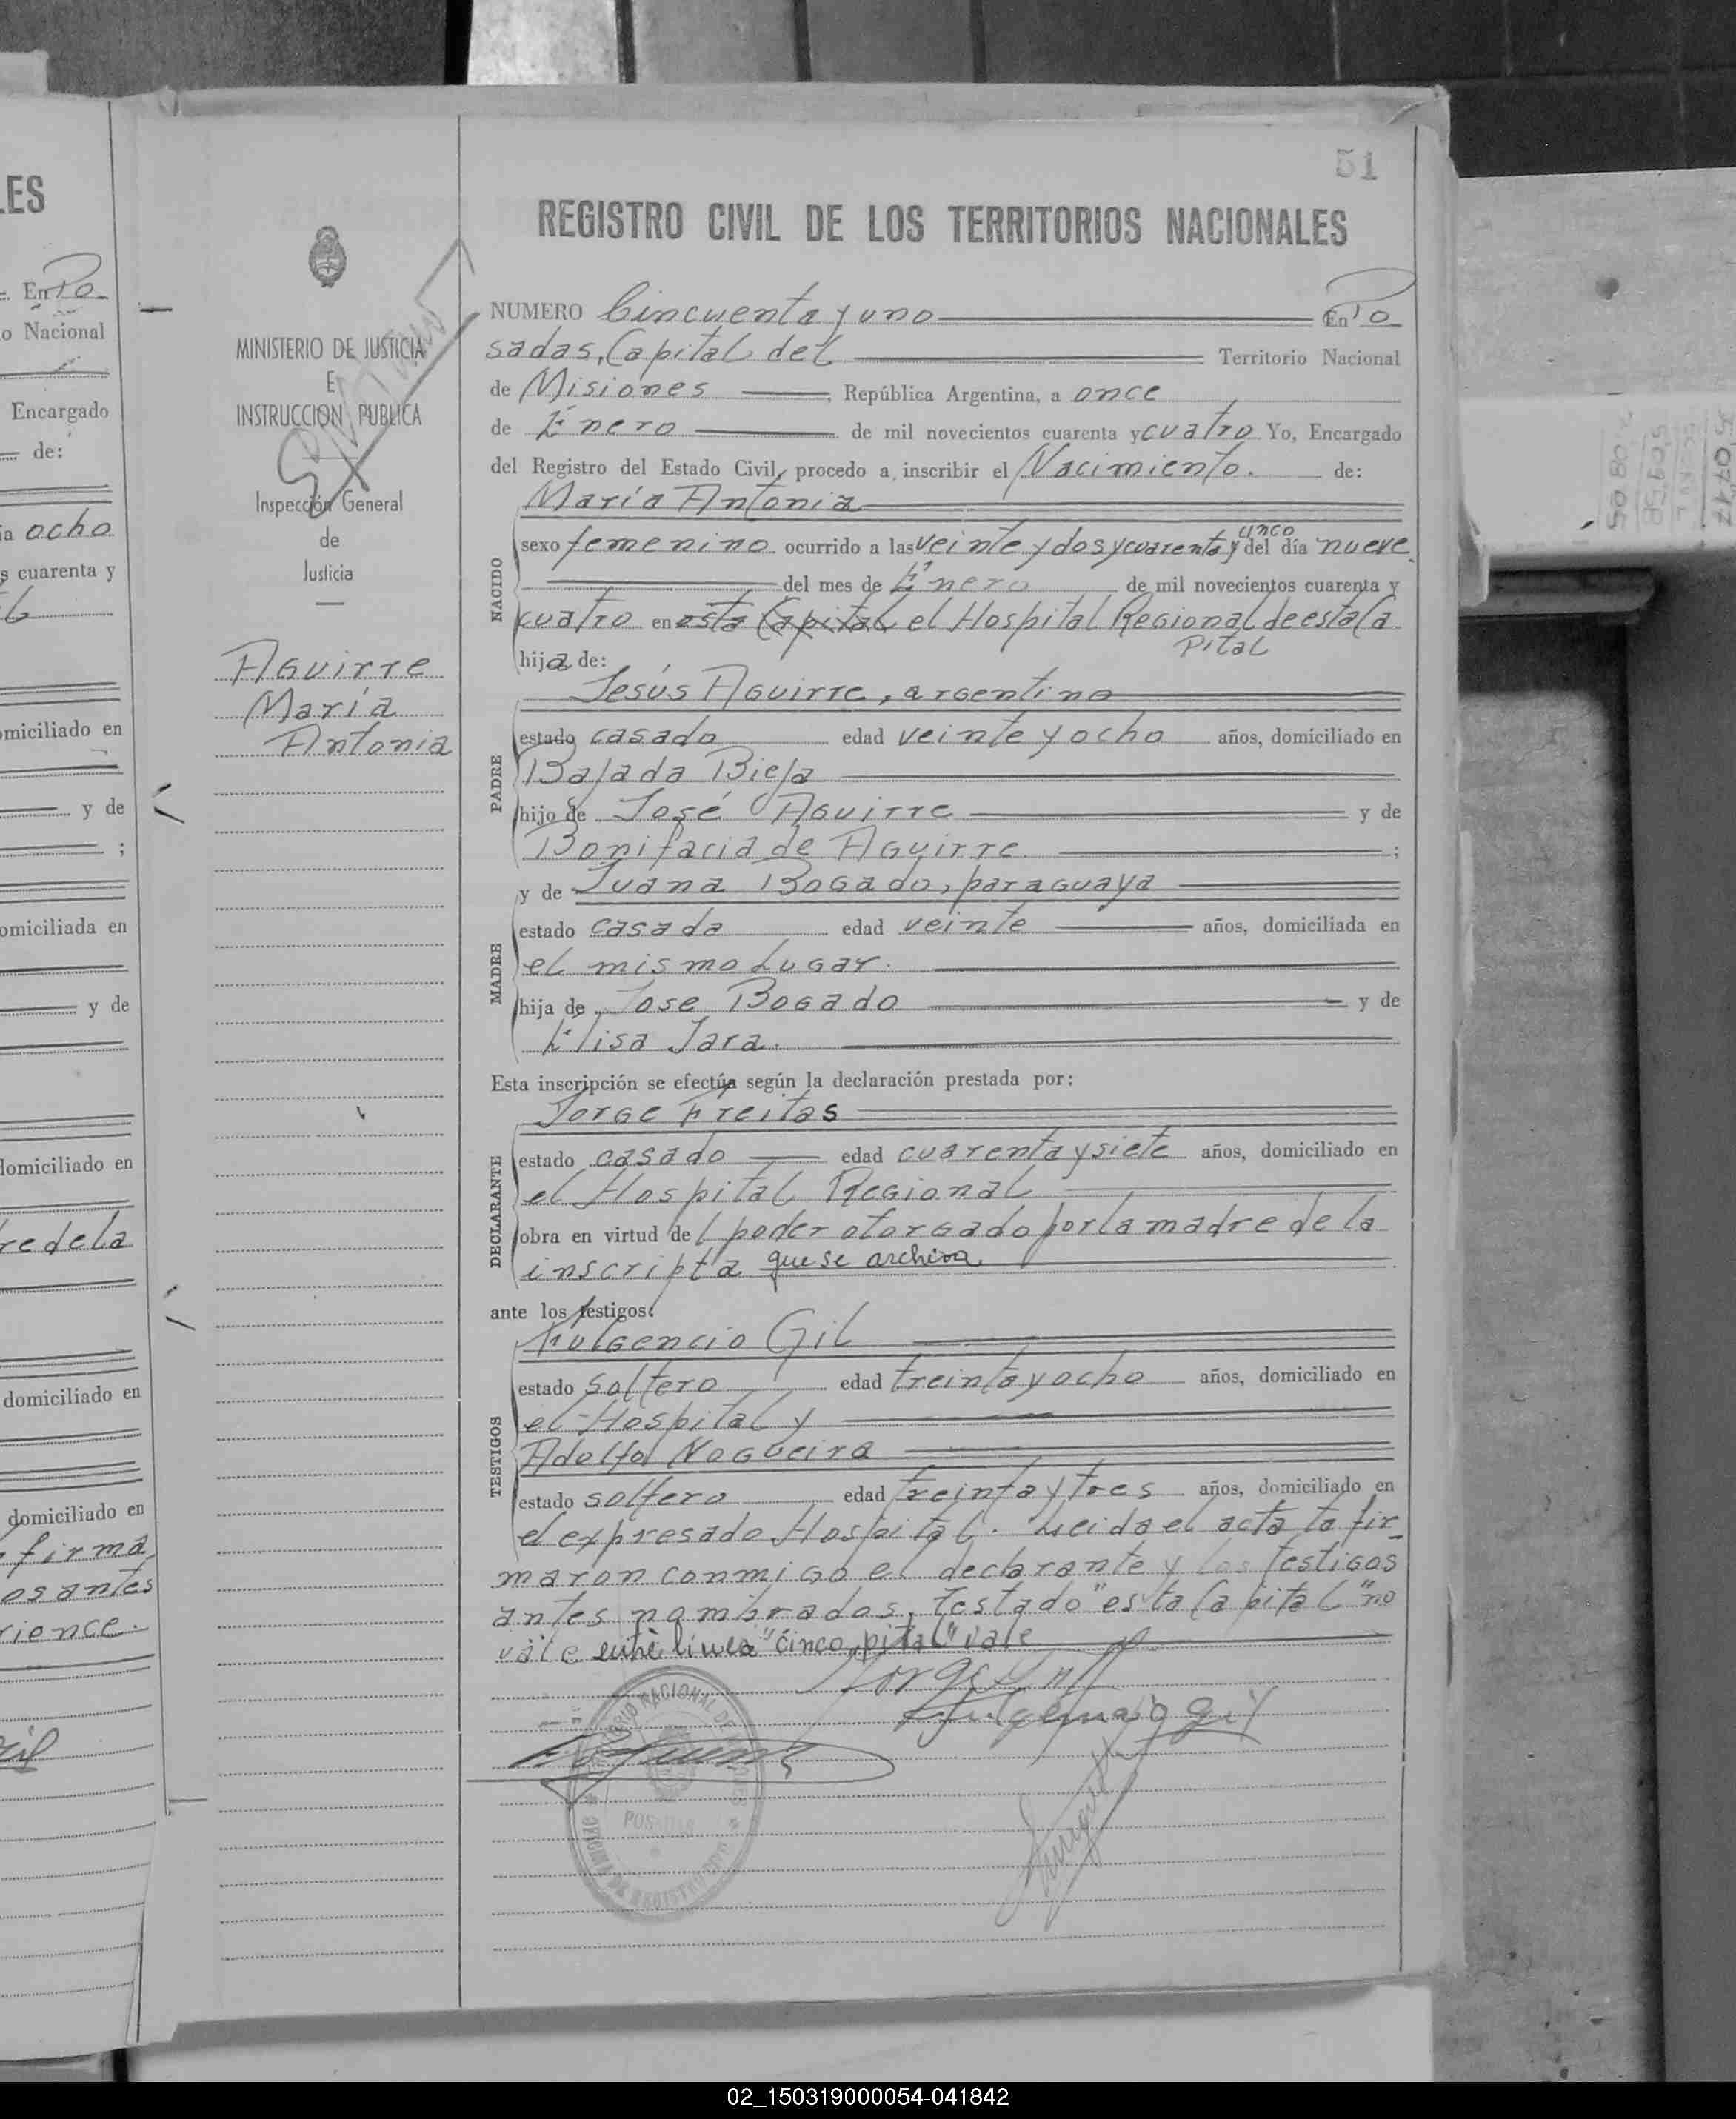 LES
En Po
o Nacional
Encargado
de:
ia ocho
s cuarenta y
omiciliado en
y de
;
omiciliada en
y de
domiciliado en
re de la
domiciliado en
domiciliado en
firma
os antes
rience.
51
REGISTRO CIVIL DE LOS TERRITORIOS NACIONALES
MINISTERIO DE JUSTICIA
E
INSTRUCCIÓN PUBLICA
Inspección General
de
Justicia
Aguirre
María
Antonia
NUMERO Cincuenta y uno En Po
sadas, Capital del Territorio Nacional
de Misiones, República Argentina, a once
de Enero de mil novecientos cuarenta y cuatro Yo, Encargado
del Registro del Estado Civil, procedo a inscribir el Nacimiento. de:
María Antonia
NACIDO
cinco
sexo femenino ocurrido a las veinte y dos y cuarenta y del día nueve
del mes de Enero de mil novecientos cuarenta y
cuatro en esta Capital el Hospital Regional de esta Ca
pital
hija de:
Jesús Aguirre, argentino
PADRE
estado casado edad veinte y ocho años, domiciliado en
Bajada Bieja
hijo de José Aguirre y de
Bonifacia de Aguirre ;
y de Juana Bogado, paraguaya
MADRE
estado casada edad veinte años, domiciliada en
el mismo Lugar.
hija de Jose Bogado y de
Elisa Jara.
Esta inscripción se efectúa según la declaración prestada por:
Jorge Freitas
DECLARANTE
estado casado edad cuarenta y siete años, domiciliado en
el Hospital Regional
obra en virtud del poder otorgado por la madre de la
inscripta que se archiva
ante los testigos:
Fulgencio Gil
TESTIGOS
estado soltero edad treinta y ocho años, domiciliado en
el Hospital y
Adolfo Nogueira
estado soltero edad treinta y tres años, domiciliado en
el expresado Hospital. Leida el acta la fir
maron conmigo el declarante y los testigos
antes nombrados, Testado "esta Capital" no
vale entre linea "cinco, pital" vale
Fulgencio Gil
POSADAS
02_150319000054-041842